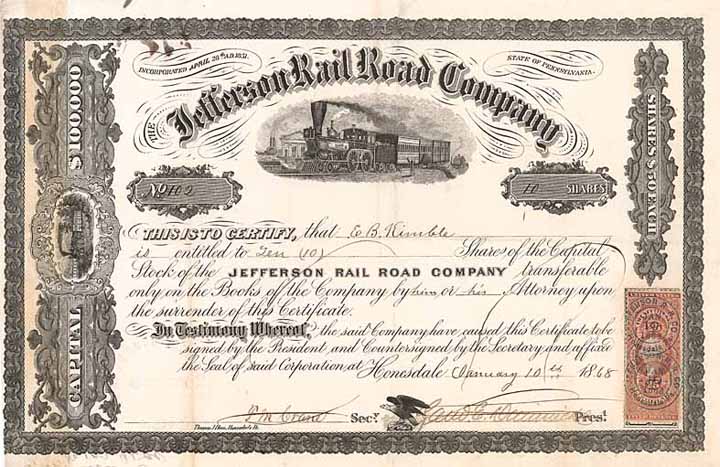 INCORPORATED APRIL 28th A.D. 1851.
STATE OF PENNSYLVANIA.
THE Jefferson Rail Road Company
CAPITAL $100,000
SHARES $50 EACH
No 102
10 SHARES
THIS IS TO CERTIFY, that E B. Kimble
is entitled to Ten (10) Shares of the Capital
Stock of the JEFFERSON RAIL ROAD COMPANY transferable
only on the Books of the Company by him or his Attorney upon
the surrender of this Certificate.
In Testimony Whereof, the said Company have caused this Certificate to be
signed by the President, and Countersigned by the Secretary and affixed
the Seal of said Corporation, at Honesdale January 10th 1868
Secy.
Prest.